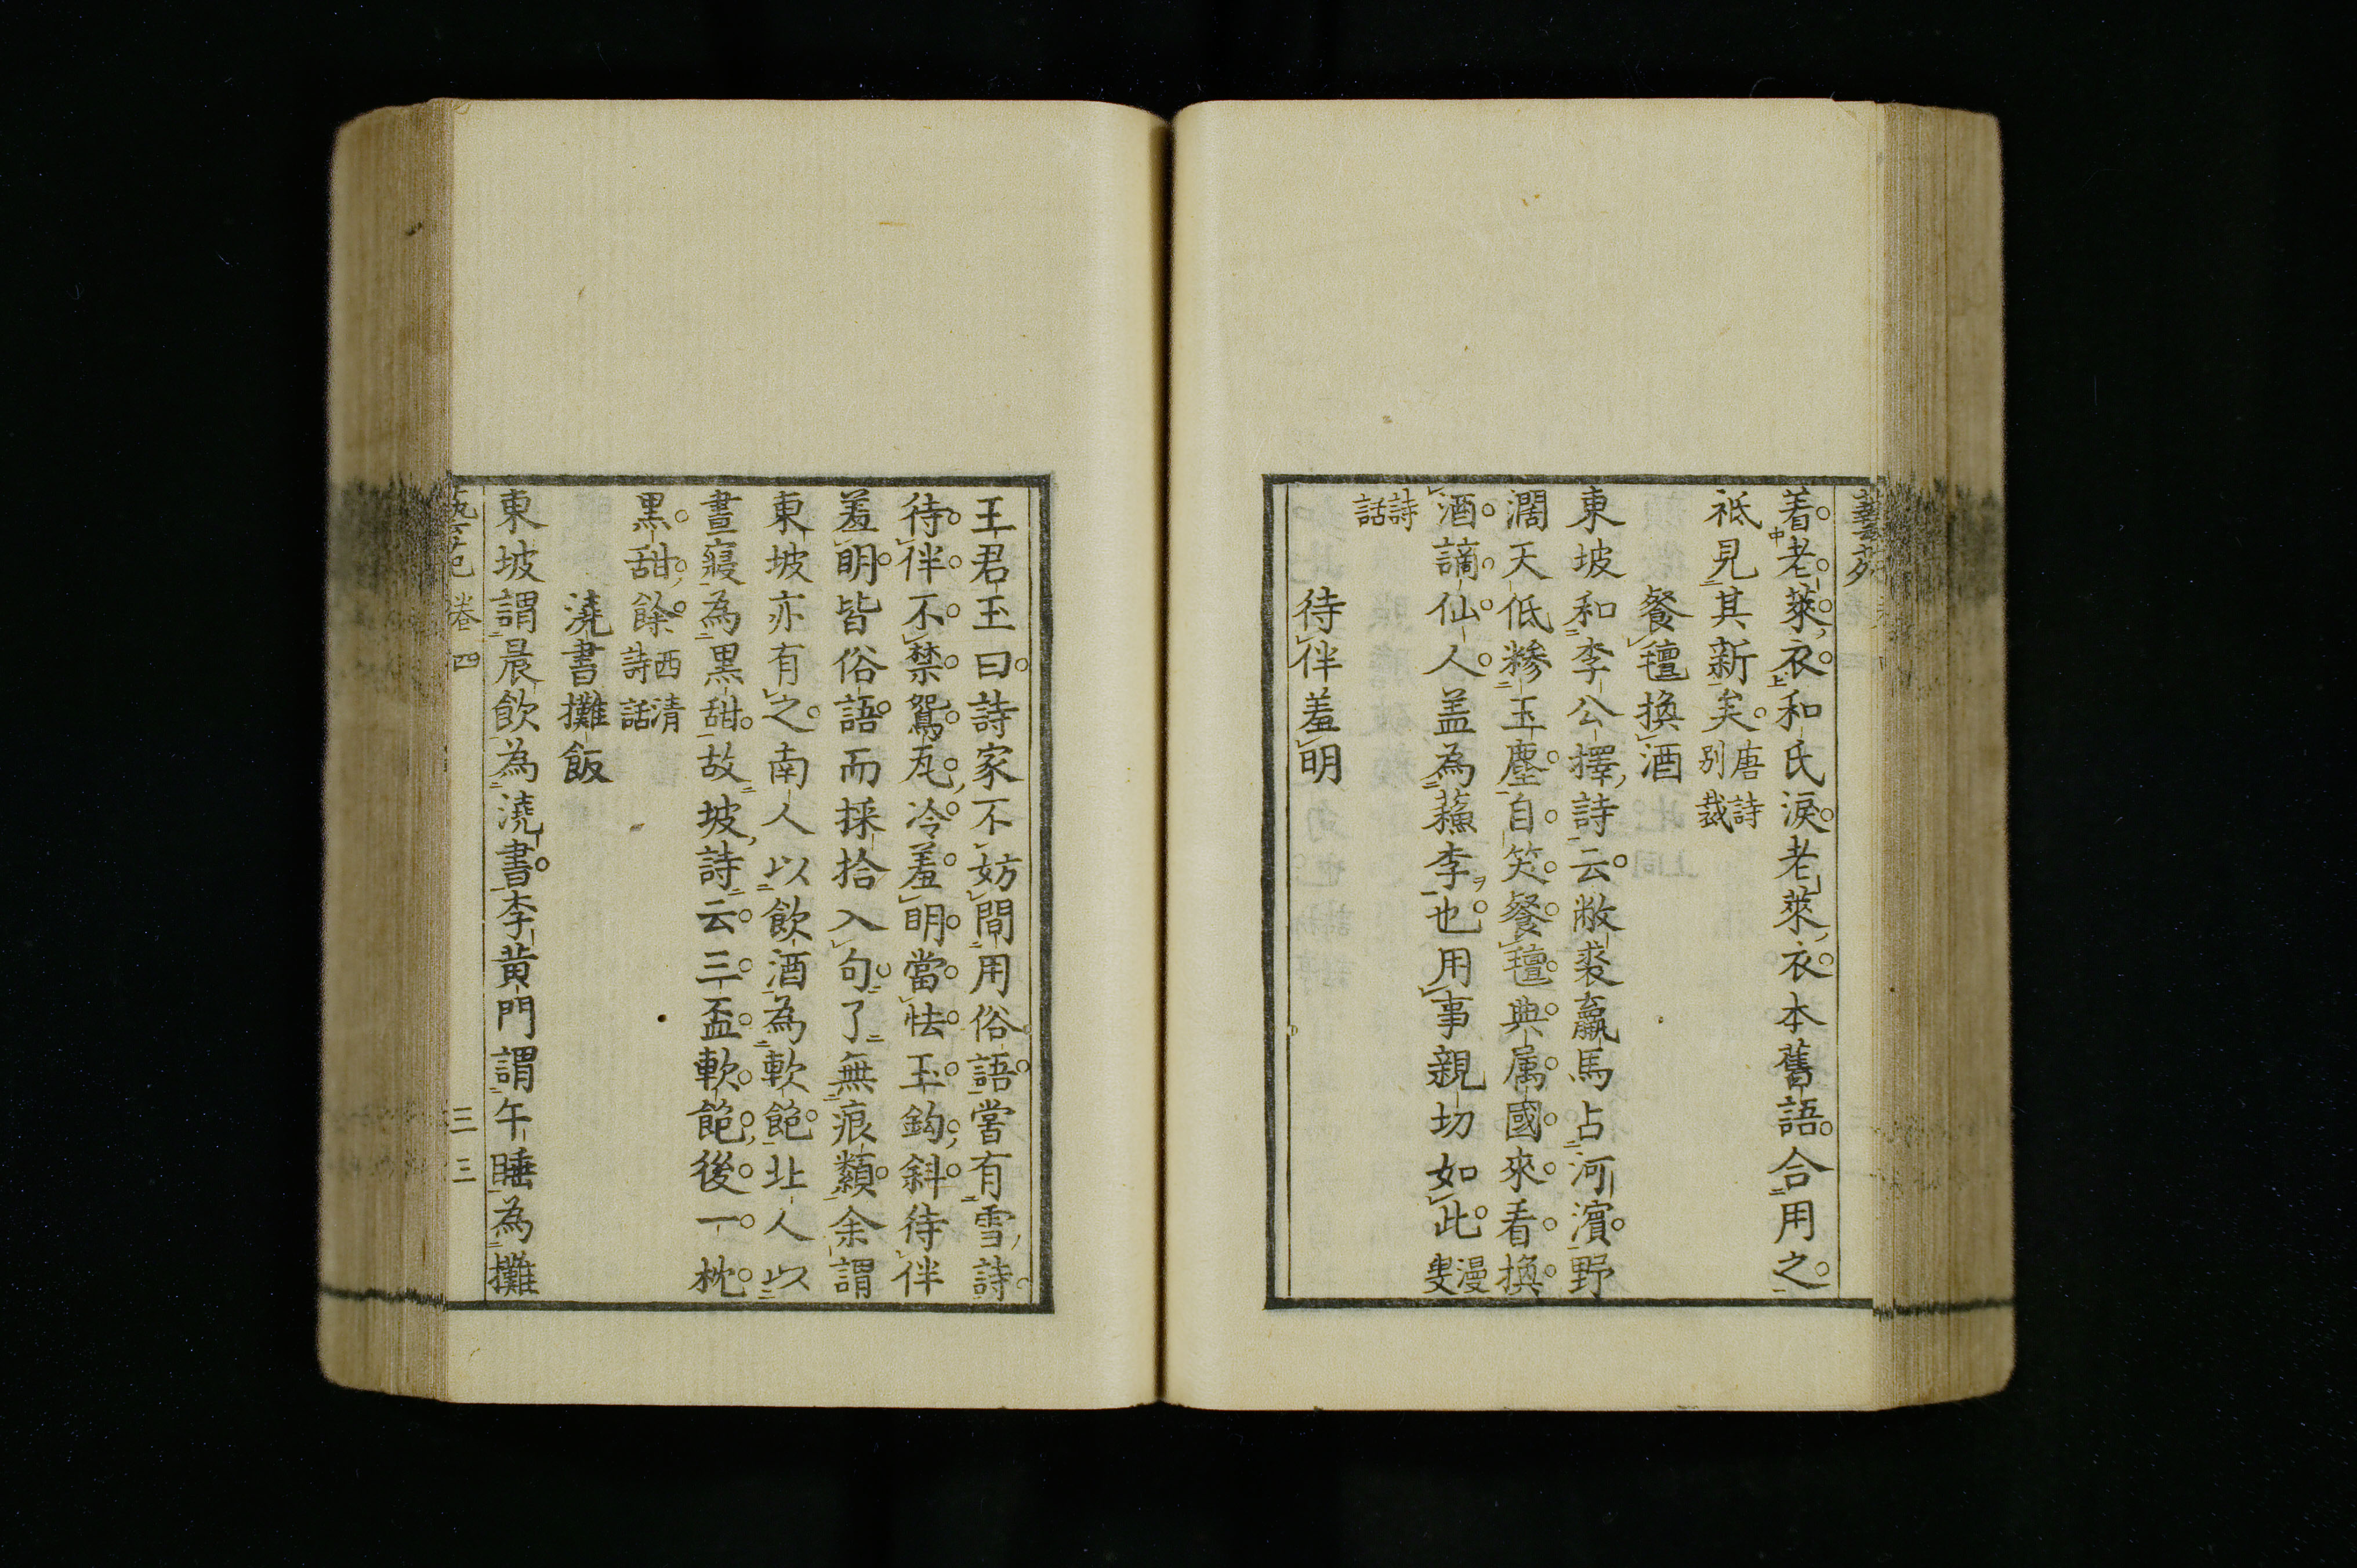 着老萊衣和氏淚老萊衣本舊語合用之
祇見其新矣唐詩別裁
餐氊換酒
東坡和李公擇詩云敝裘羸馬占河濵野
濶天低糝玉塵自笑餐氊典属國來看換
酒謫仙人盖為蘓李也用事親切如此漫叟
詩話
待伴羞明
王君玉曰詩家不妨間用俗語嘗有雪詩
待伴不禁鴛瓦冷羞明當怯玉鈎斜待伴
羞明皆俗語而採拾入句了無痕纇余謂
東坡亦有之南人以飲酒為軟飽北人以
晝寢為黒甜故坡詩云三盃軟飽後一枕
黒甜餘西清詩話
澆書攤飯
東坡謂晨飲為澆書李黄門謂午睡為攤
卷四 三三